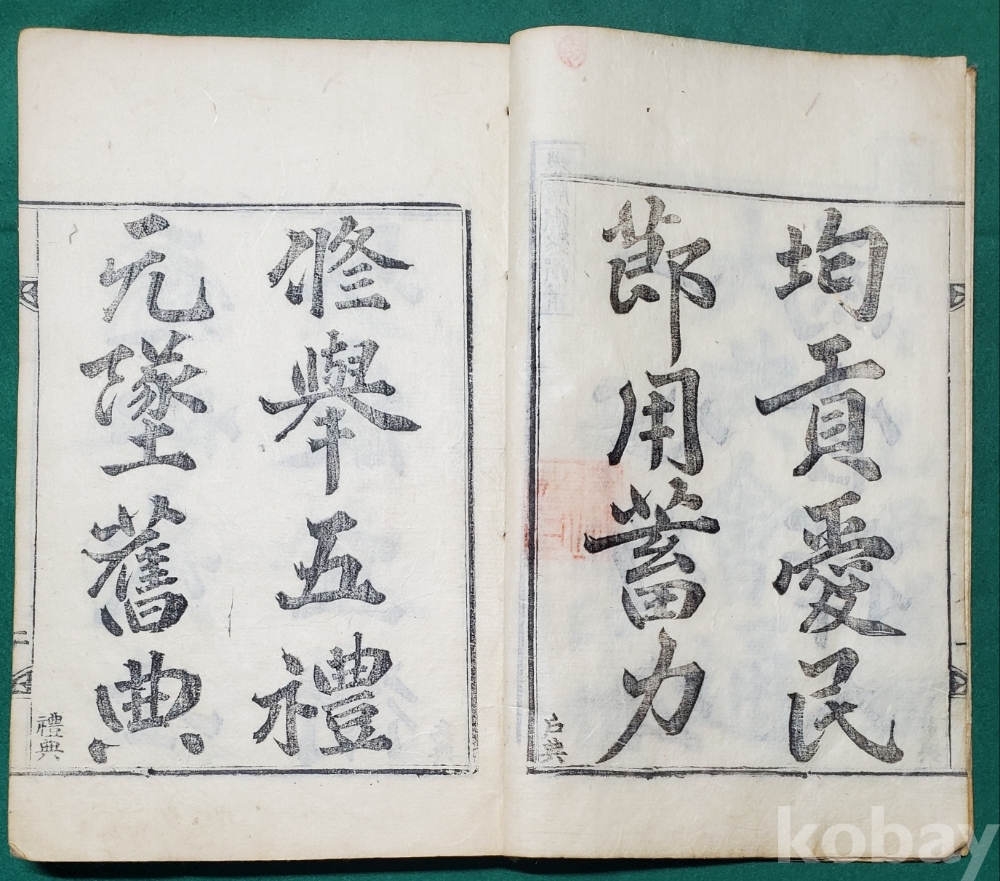 均貢愛民
節用蓄力
戶典
修擧五禮
无墜舊典
二
禮典
kobay